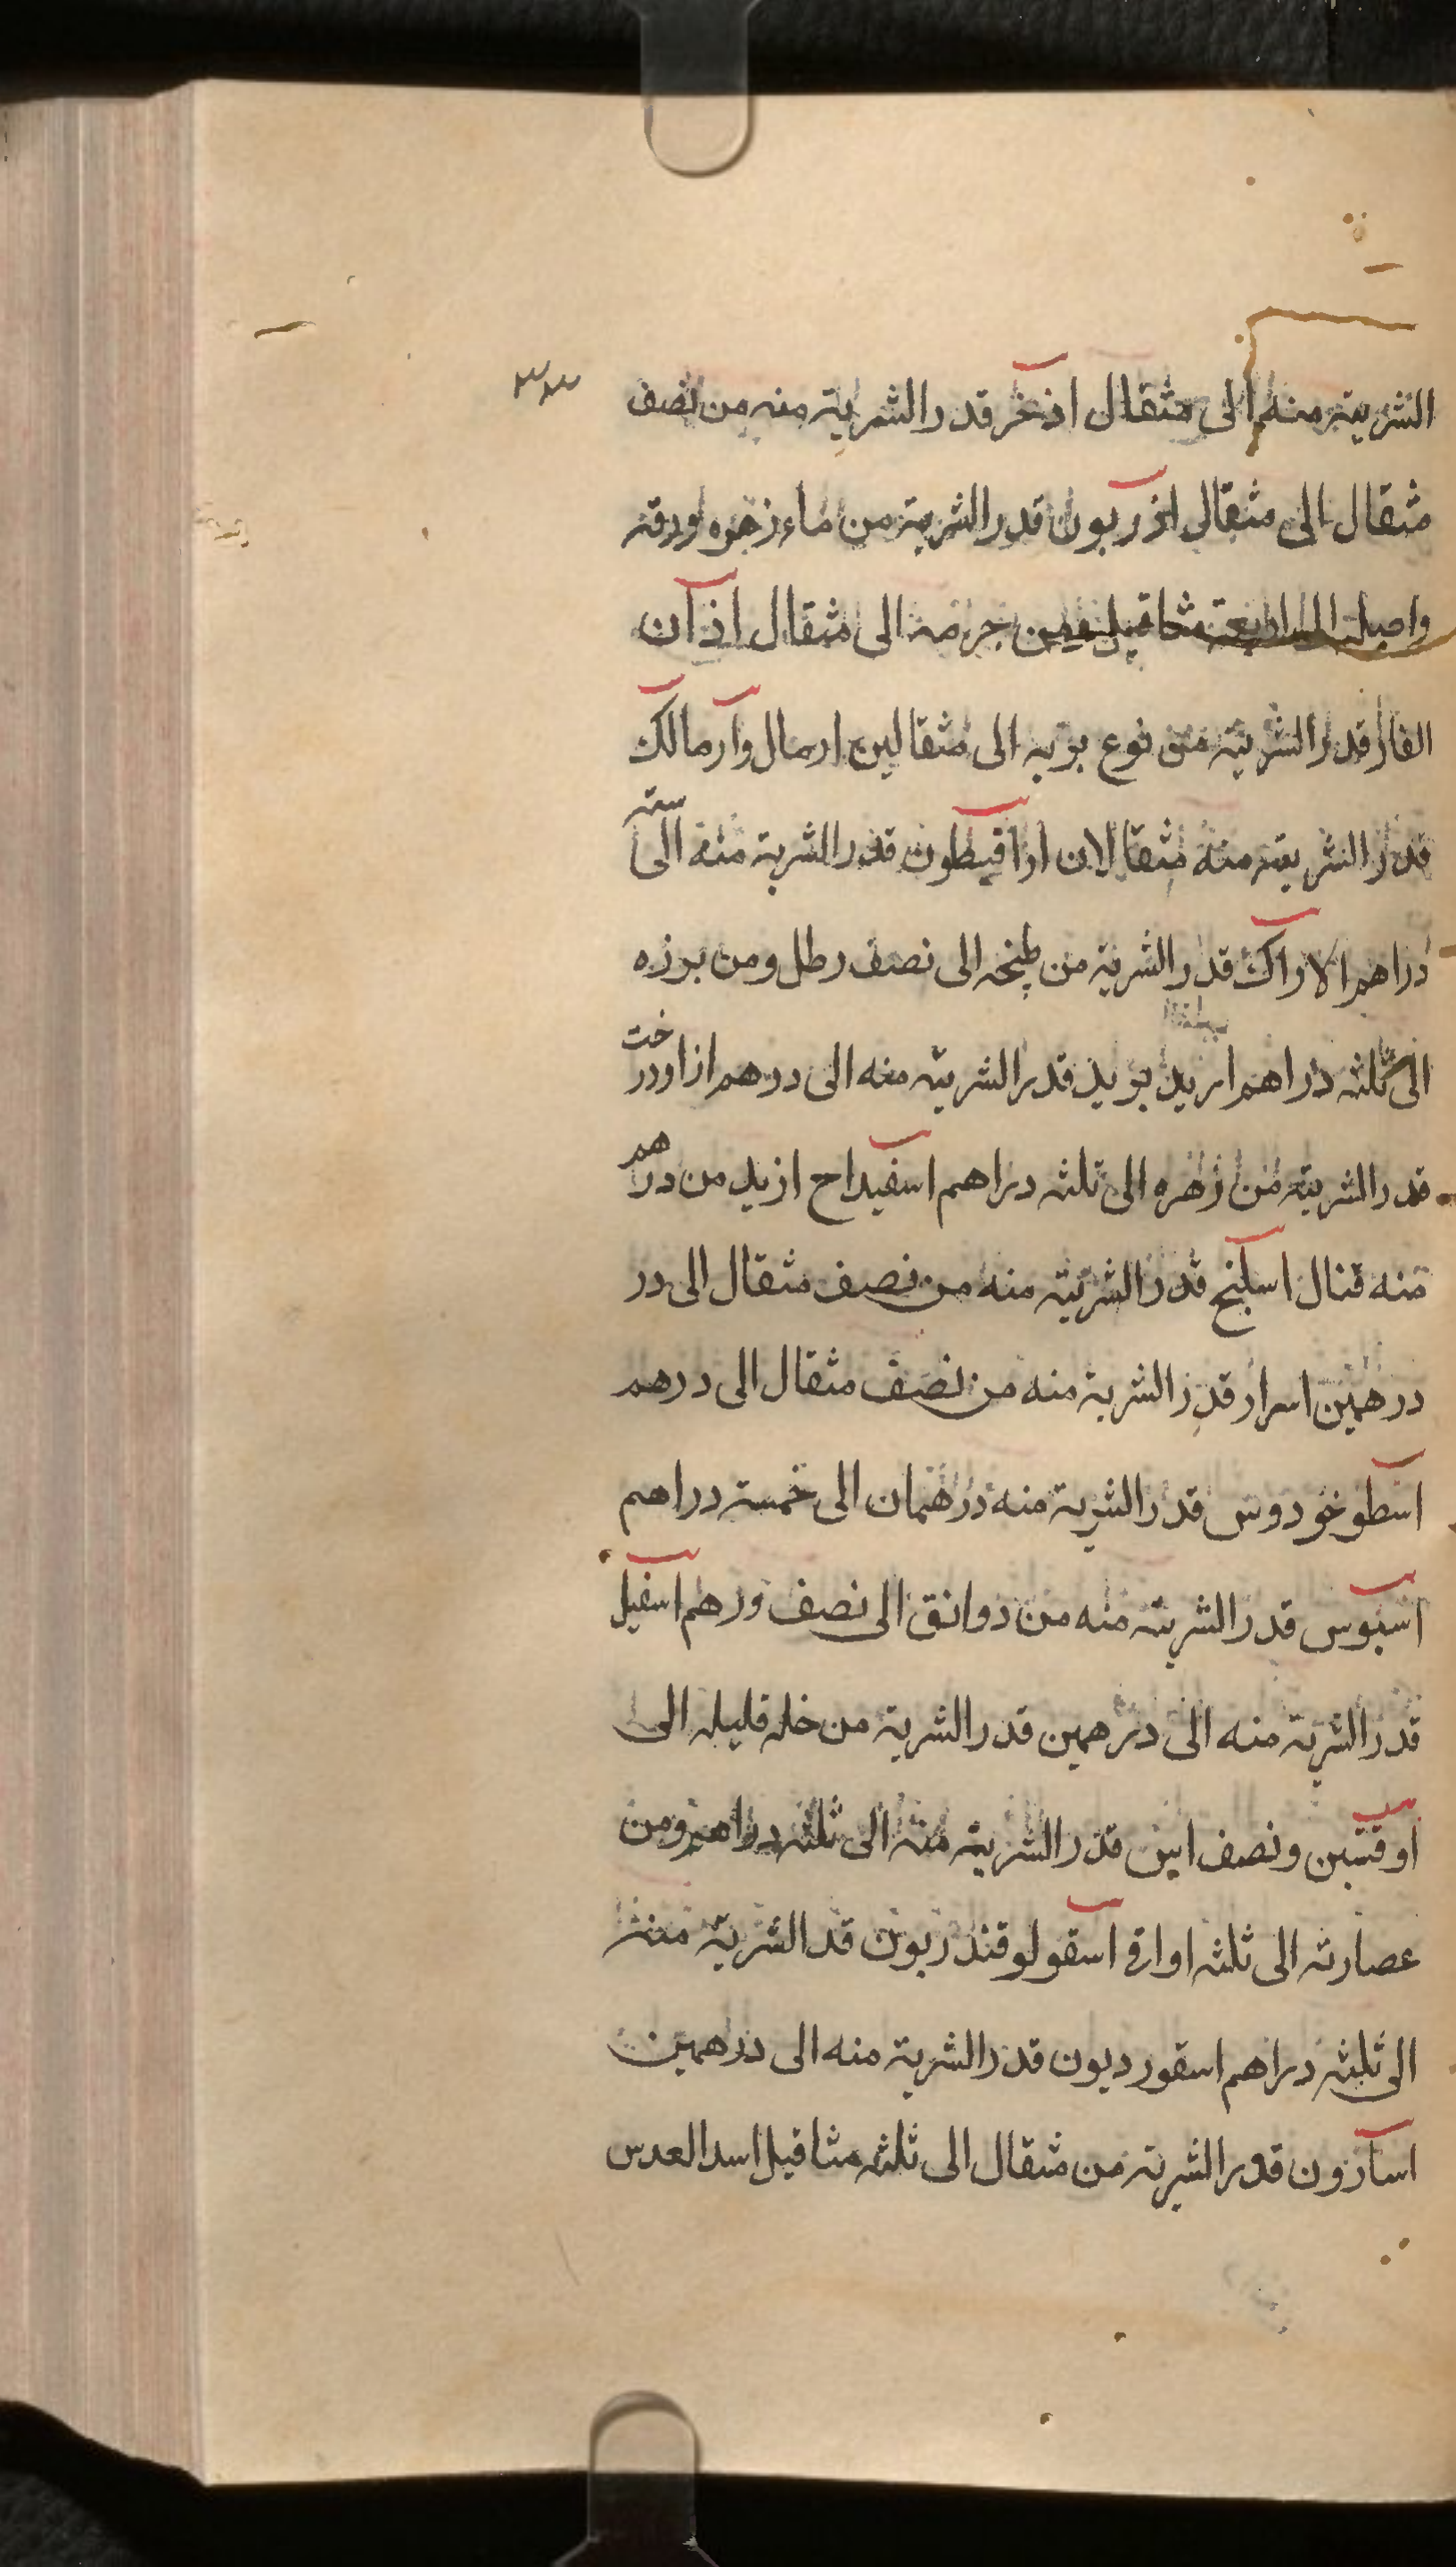 ٣٣
الشربة منه الى مثقال اذخر قدر الشربة منه من نصف
مثقال الى مثقال اذريون قدر الشربة من ماء زهره وورقه
واصله الى اربعة مثاقيل ومن جرمه الى مثقال اذان
الفار قدر الشربة من نوع بريه الى مثقالين ارمال وارمالك
قدر الشربة منه مثقالان اراقيطون قدر الشربة منه الى ستة
دراهم الاراك قدر الشربة من طبخه الى نصف رطل ومن بزره
الى ثلثة دراهم اربد بريد قدر الشربة منه الى درهم ازاددرخت
قدر الشربة من زهره الى ثلثة دراهم اسفيداح ازيد من درهم
منه قتال اسكبنج قدر الشربة منه من نصف مثقال الى در
درهمين اسرار قدر الشربة منه من نصف مثقال الى درهم
اسطوخودوس قدر الشربة منه درهمان الى خمسة دراهم
اسبوس قدر الشربة منه من دوانق الى نصف درهم اسقيل
قدر الشربة منه الى درهمين قدر الشربة من خله قليله الى
اوقتين ونصف ابين قدر الشربة منه الى ثلثة دراهم ومن
عصارته الى ثلثه اواق اسقولوقندريون قد الشربة منه
الى ثلثه دراهم اسقورديون قدر الشربة منه الى درهمين
اسارون قدر الشربة من مثقال الى ثلثه مثاقيل اسد العدس